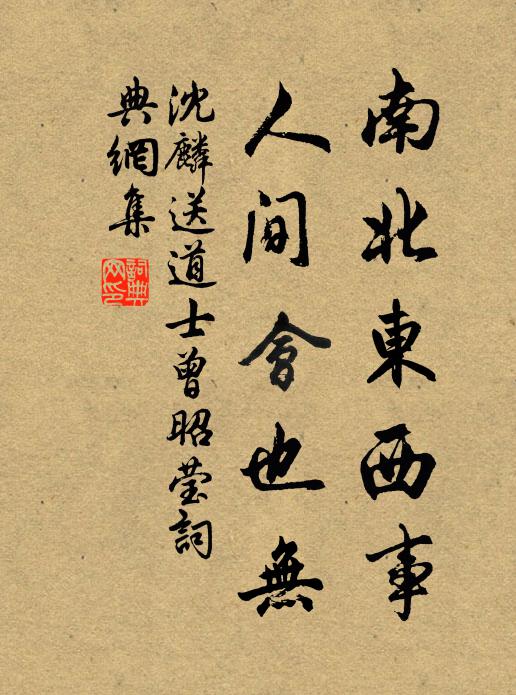 南北東西事
人间會也無
沈麟送道士曾昭莹詞
典網集
詞典
网印